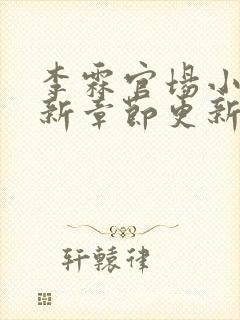 李霖官场小
新章节更新
轩辕律